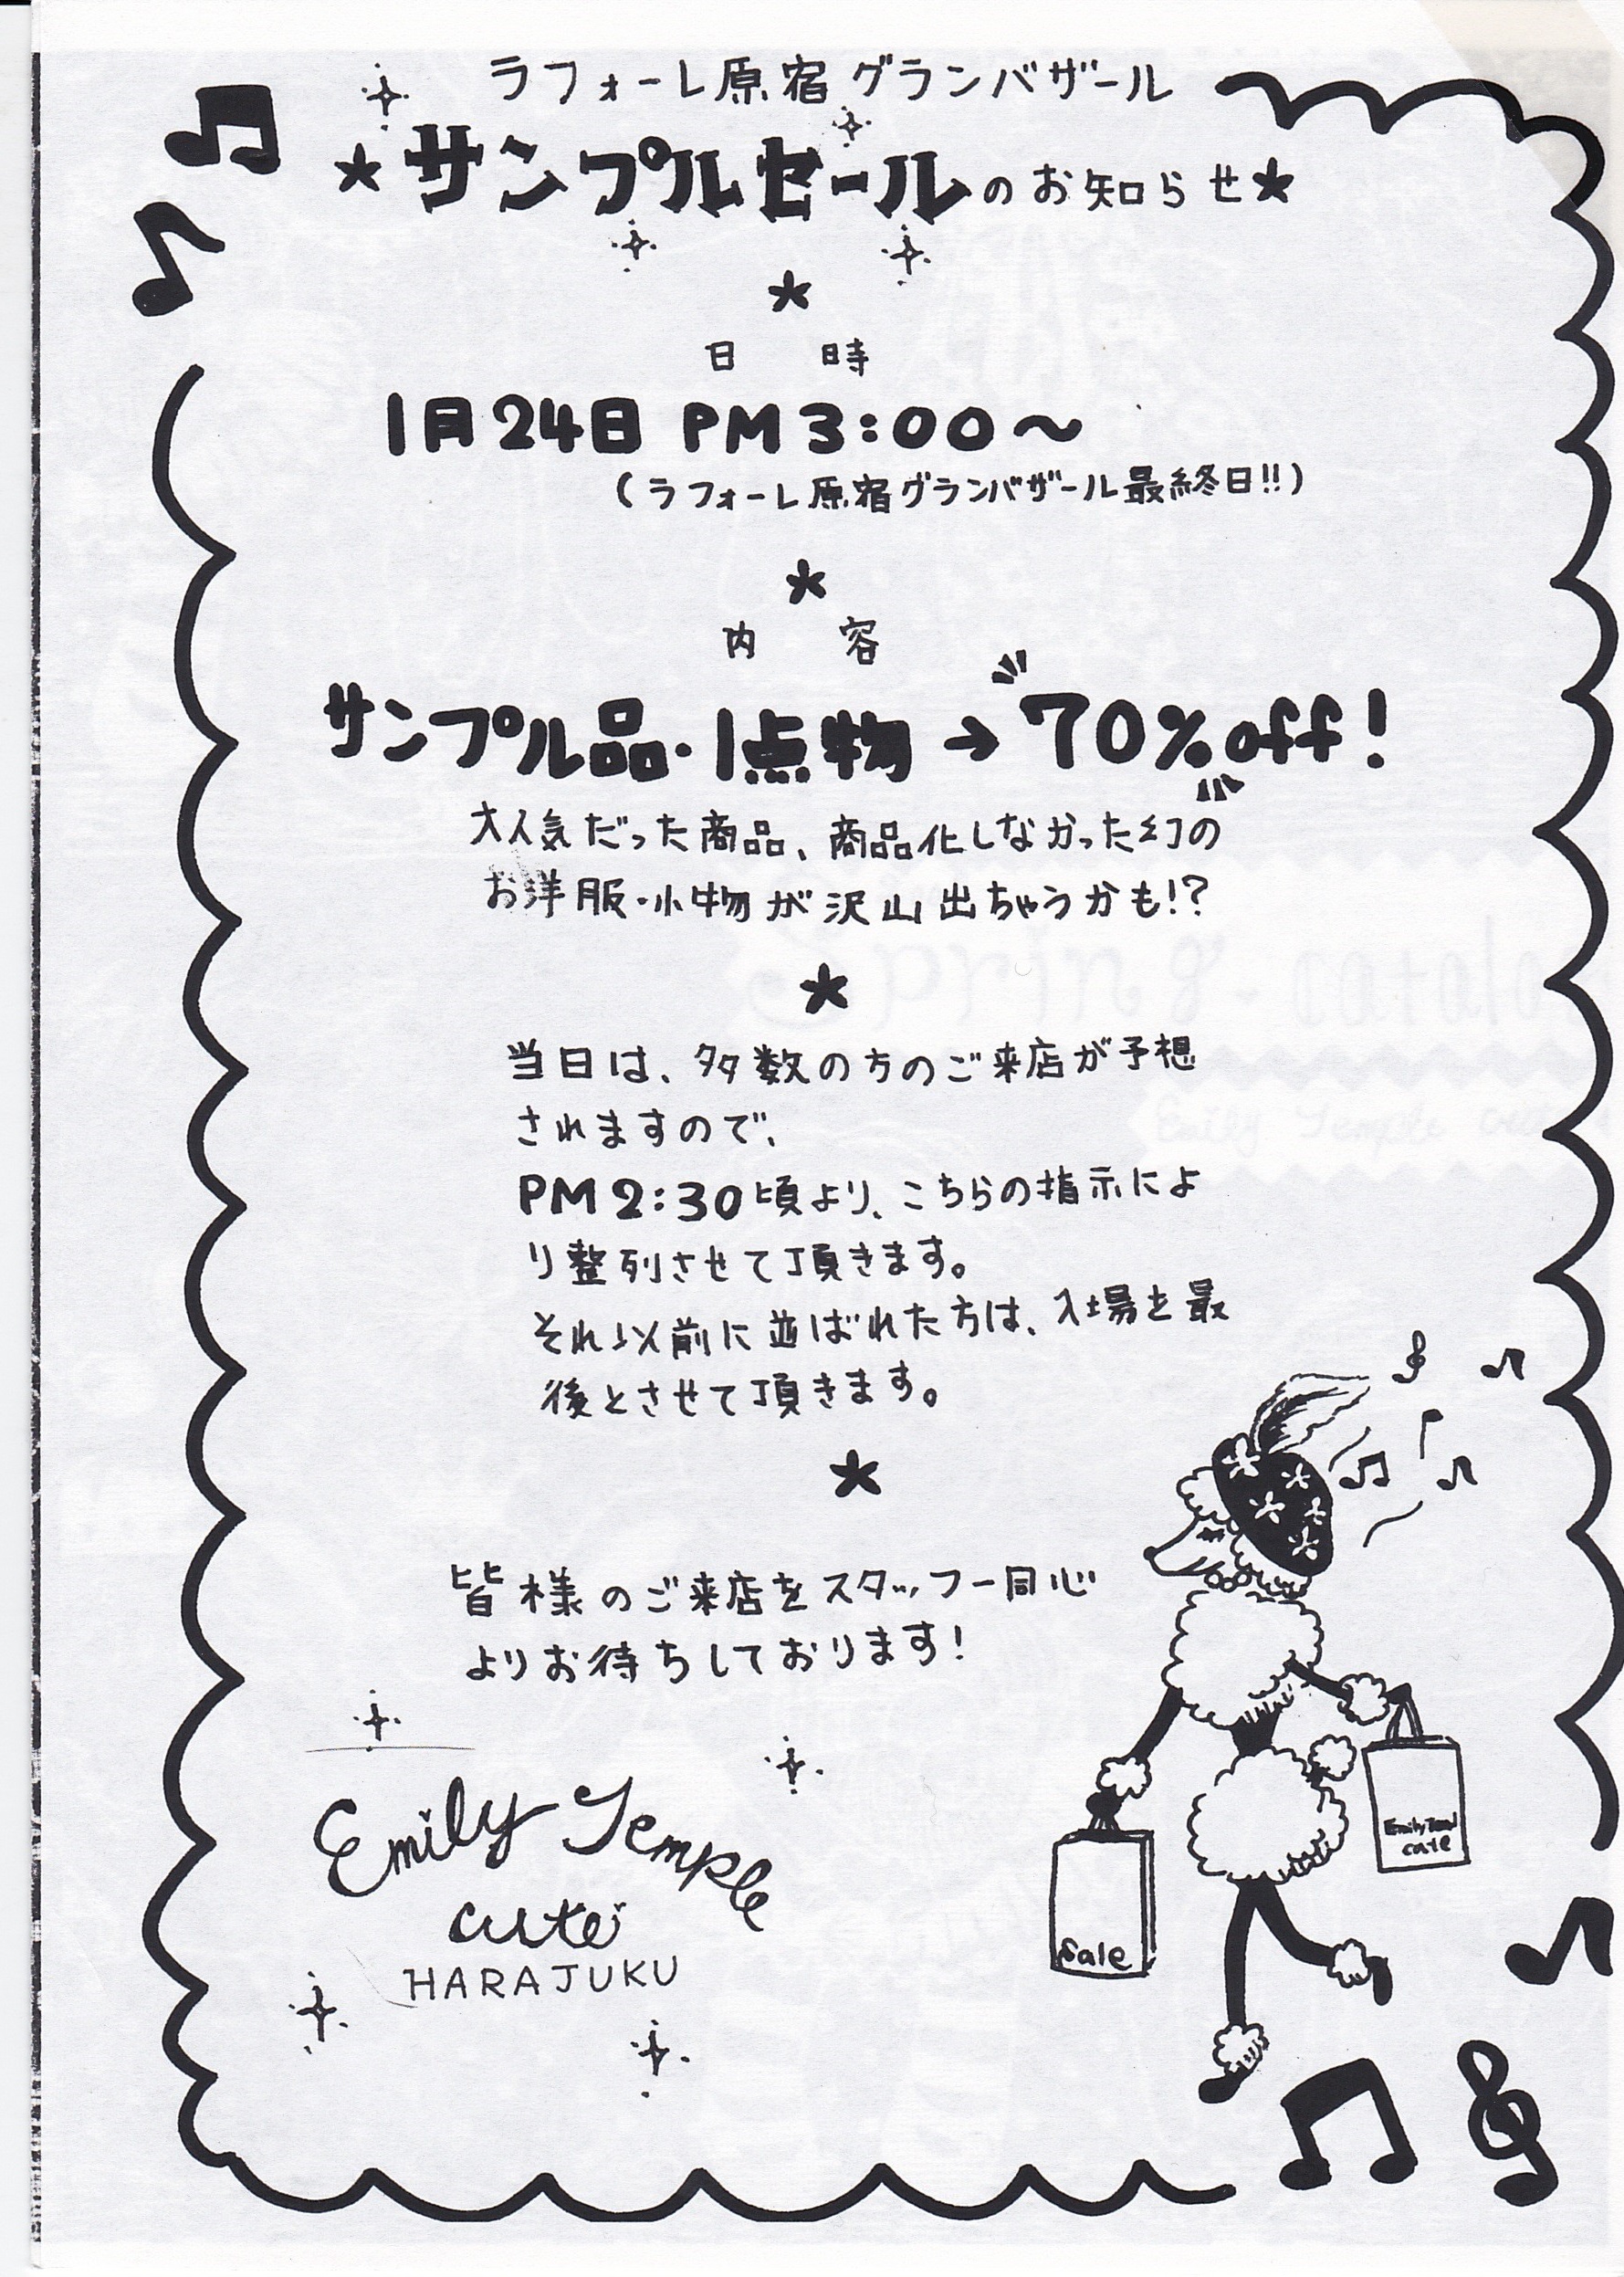 ラフォーレ原宿 グランバザール
★サンプルセールのお知らせ★
日 時
1月24日 PM3:00〜
(ラフォーレ原宿グランバザール最終日!!)
内 容
サンプル品・1点物→70%off!
大人気だった商品、商品化しなかった幻の
お洋服・小物が沢山出ちゃうかも!?
当日は、多数の方のご来店が予想
されますので、
PM2:30頃より、こちらの指示によ
り整列させて頂きます。
それ以前に並ばれた方は、入場を最
後とさせて頂きます。
皆様のご来店をスタッフ一同心
よりお待ちしております!
Emily Temple
cute
HARAJUKU
Sale